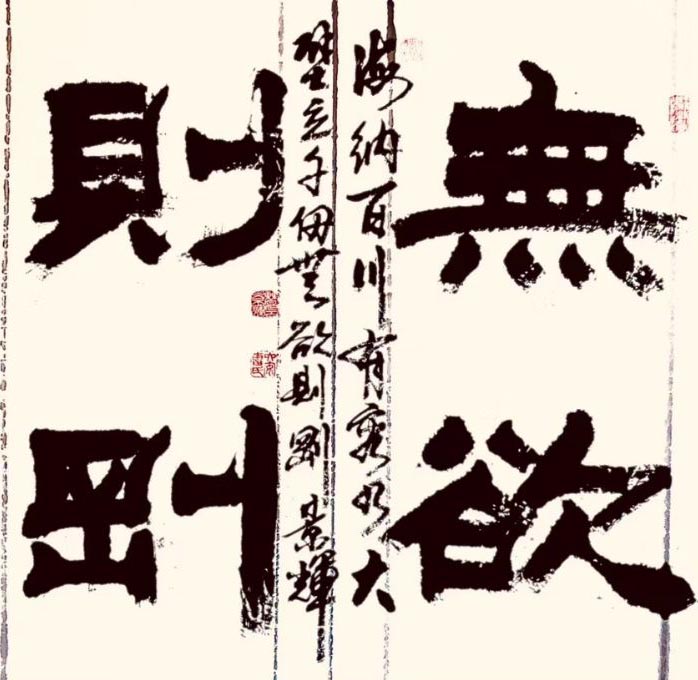 無欲
則剛
海納百川有容乃大
壁立千仞無欲則剛 景輝